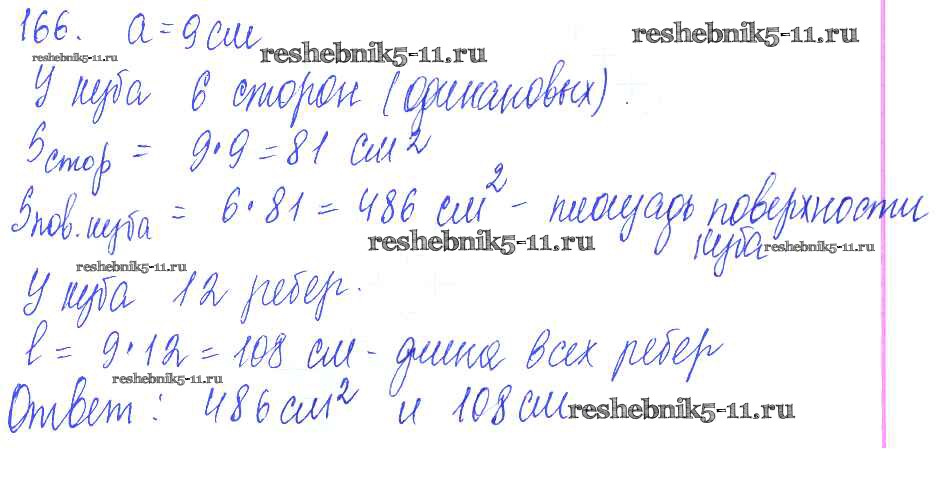 166. a = 9 см
reshebnik5-11.ru
reshebnik5-11.ru
reshebnik5-11.ru
У куба 6 сторон (одинаковых).
Sстор = 9 · 9 = 81 см²
Sпов. куба = 6 · 81 = 486 см² - площадь поверхности
куба
reshebnik5-11.ru
reshebnik5-11.ru
reshebnik5-11.ru
У куба 12 ребер.
l = 9 · 12 = 108 см - длина всех ребер
reshebnik5-11.ru
Ответ: 486 см² и 108 см
reshebnik5-11.ru